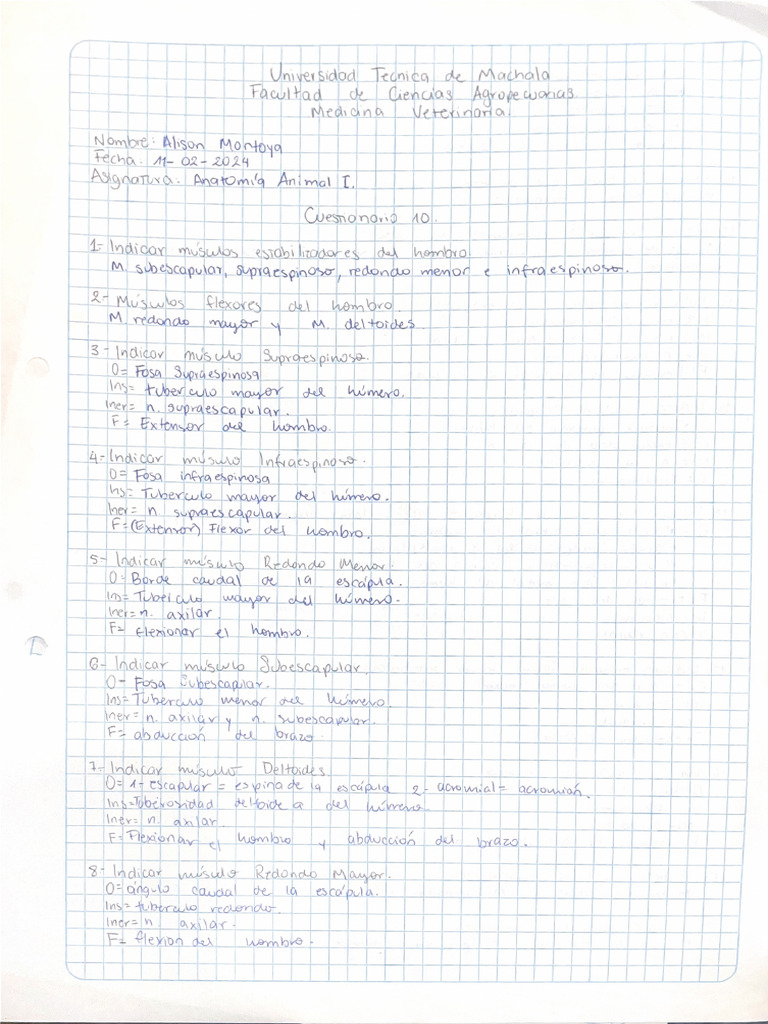 Universidad Tecnica de Machala
Facultad de Ciencias Agropecuarias.
Medicina Veterinaria.
Nombre: Alison Montoya
Fecha. 11-02-2024
Asignatura. Anatomía Animal I.
Cuestionario 10.
1- Indicar músculos estabilizadores del hombro
M. subescapular, supraespinoso, redondo menor e infraespinoso.
2- Músculos flexores del hombro.
M. redondo mayor y M. deltoides
3- Indicar músculo Supraespinoso.
O= Fosa Supraespinosa
Ins= tuberculo mayor del húmero.
Iner= n. supraescapular.
F= Extensor del hombro.
4- Indicar músculo Infraespinoso.
O= Fosa infraespinosa
Ins= Tuberculo mayor del húmero.
Iner= n supraescapular.
F=(Extensor) Flexor del hombro.
5- Indicar músculo Redondo Menor.
O- Borde caudal de la escápula.
Ins= Tuberculo mayor del húmero.
Iner= n. axilar.
F= flexionar el hombro.
6- Indicar músculo Subescapular.
O- Fosa Subescapular.
Ins= Tuberculo menor del húmero.
Iner= n. axilar y n. subescapular.
F= abducción del brazo
7- Indicar músculo Deltoides.
O= 1- escapular = espina de la escápula 2- acromial= acromian.
Ins=Tuberosidad deltoidea del húmero.
Iner= n. axilar.
F=Flexionar el hombro y abducción del brazo.
8- Indicar músculo Redondo Mayor.
O= ángulo caudal de la escápula.
Ins= tuberculo redondo.
Iner= n axilar.
F= flexion del hombro.